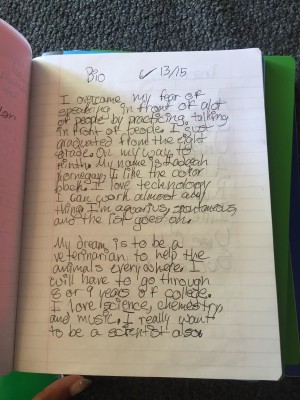 Bio ✓ 13/15
I overcame my fear of
speaking in front of alot
of people by practicing talking
in front of people. I just
graduated from the eight
grade. On my way to
ninth. My name is
I like the color
black. I love technology
I can work almost any
thing. I'm aquarius, spontaneous,
and the list goes on.
My dream is to be a
veterinarian to help the
animals everywhere. I
will have to go through
8 or 9 years of college.
I love science, chemestry
and music. I really want
to be a scientist also.